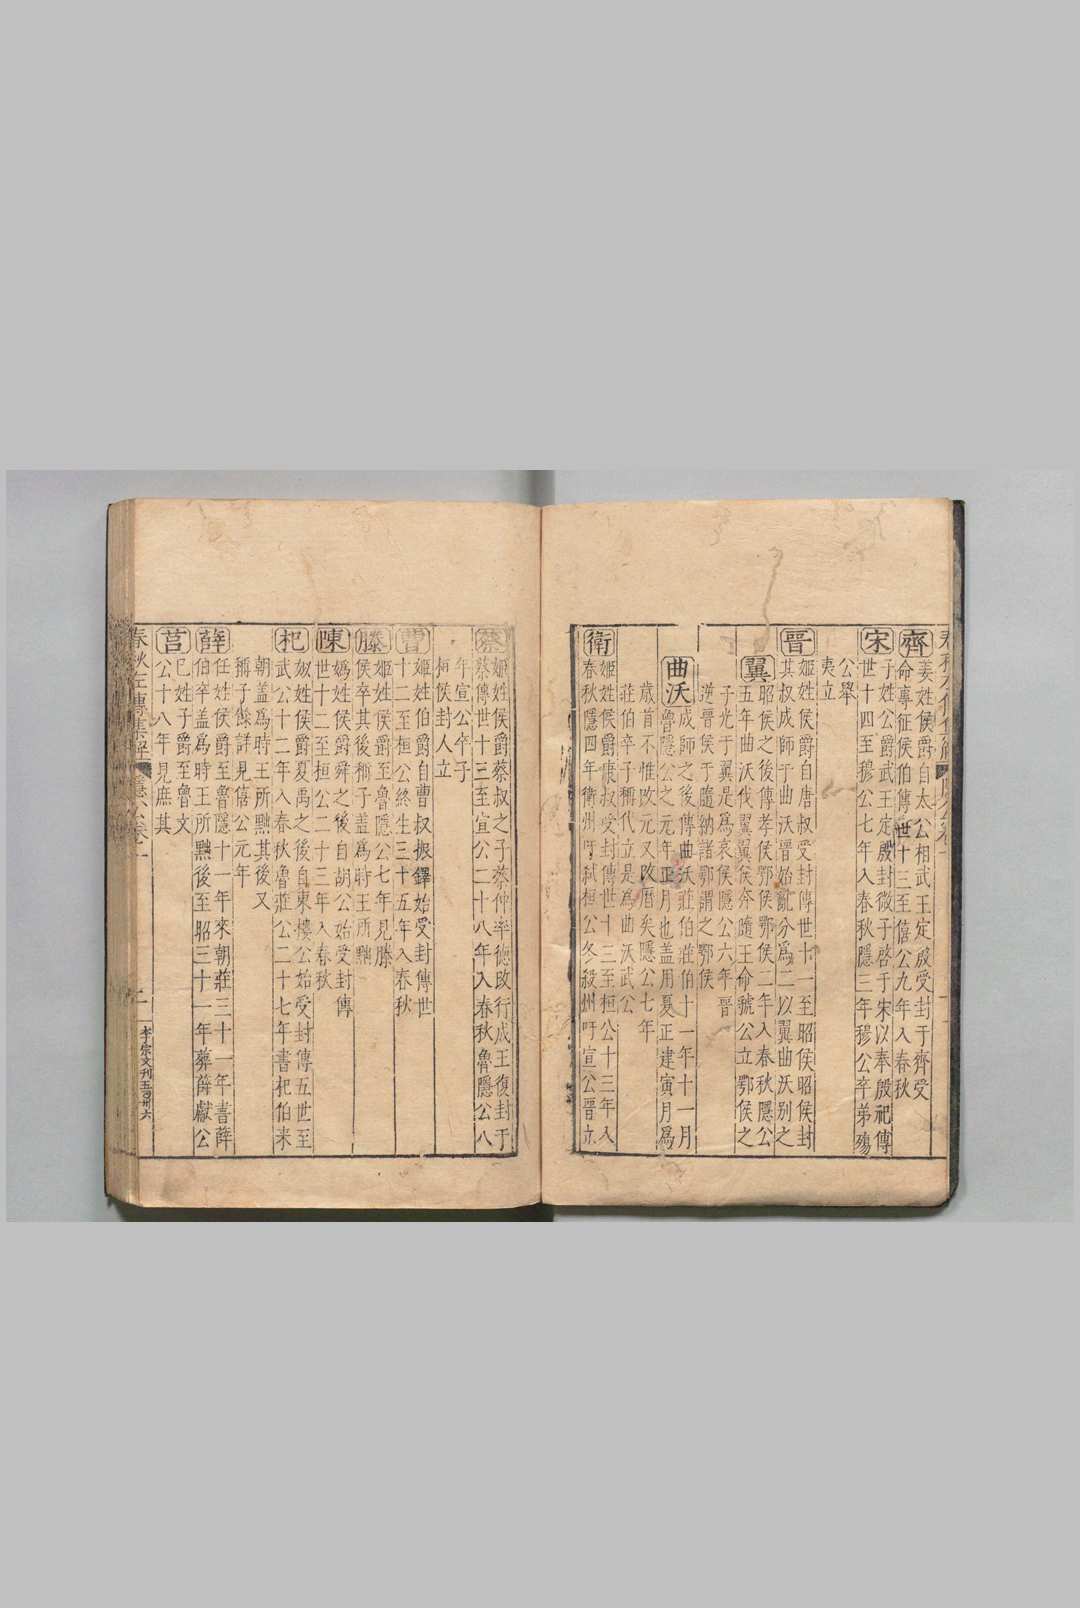 齊姜姓侯爵自太公相武王定殷受封于齊受
命專征侯伯傳世十三至僖公九年入春秋
宋子姓公爵武王定殷封微子啓于宋以奉殷祀傳
世十四至穆公七年入春秋隱三年穆公卒弟殤
公舉
夷立
晉姬姓侯爵自唐叔受封傳世十一至昭侯昭侯封
其叔成師于曲沃晉始亂分爲二以翼曲沃別之
翼昭侯之後傳孝侯鄂侯鄂侯二年入春秋隱公
五年曲沃伐翼翼侯奔隨王命虢公立鄂侯之
子光于翼是爲哀侯隱公六年晉
逆晉侯于隨納諸鄂謂之鄂侯
曲沃成師之後傳曲沃莊伯莊伯十一年十一月
魯隱公之元年正月也盖用夏正建寅月爲
歲首不惟改元又改曆矣隱公七年
莊伯卒子稱代立是為曲沃武公
衛姬姓侯爵康叔受封傳世十三至桓公十三年入
春秋隱四年衛州吁弒桓公冬殺州吁宣公晋立
蔡姬姓侯爵蔡叔之子蔡仲率德改行成王復封于
蔡傳世十三至宣公二十八年入春秋魯隱公八
年宣公卒子
桓侯封人立
曹姬姓伯爵自曹叔振鐸始受封傳世
十二至桓公終生三十五年入春秋
滕姬姓侯爵至魯隱公七年見滕
侯卒其後稱子盖爲時王所黜
陳媯姓侯爵舜之後自胡公始受封傳
世十二至桓公二十三年入春秋
杞姒姓侯爵夏禹之後自東樓公始受封傳五世至
武公十二年入春秋魯莊公二十七年書杞伯来
朝盖爲時王所黜其後又
稱子餘詳見僖公元年
薛任姓侯爵至魯隱十一年來朝莊三十一年書薛
伯卒盖爲時王所黜後至昭三十一年葬薛獻公
莒巳姓子爵至魯文
公十八年見庶其
春秋左傳集解 隱公卷一
二
李宗文刊五百卅六